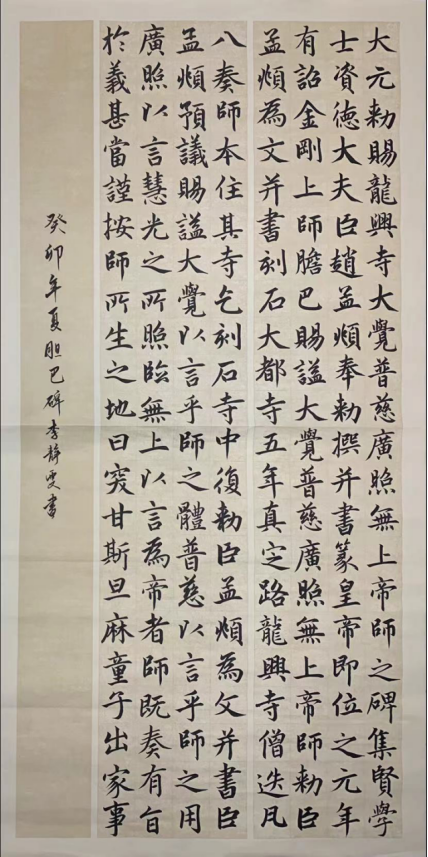 大元勅賜龍興寺大覺普慈廣照無上帝師之碑集賢學
士資德大夫臣趙孟頫奉勅撰并書篆皇帝即位之元年
有詔金剛上師膽巴賜謚大覺普慈廣照無上帝師勅臣
孟頫為文并書刻石大都寺五年真定路龍興寺僧迭凡
八奏師本住其寺乞刻石寺中復勅臣孟頫為文并書臣
孟頫預議賜謚大覺以言乎師之體普慈以言乎師之用
廣照以言慧光之所照臨無上以言為帝者師既奏有旨
於義甚當謹按師所生之地曰突甘斯旦麻童子出家事
癸卯年夏胆巴碑李靜雯書